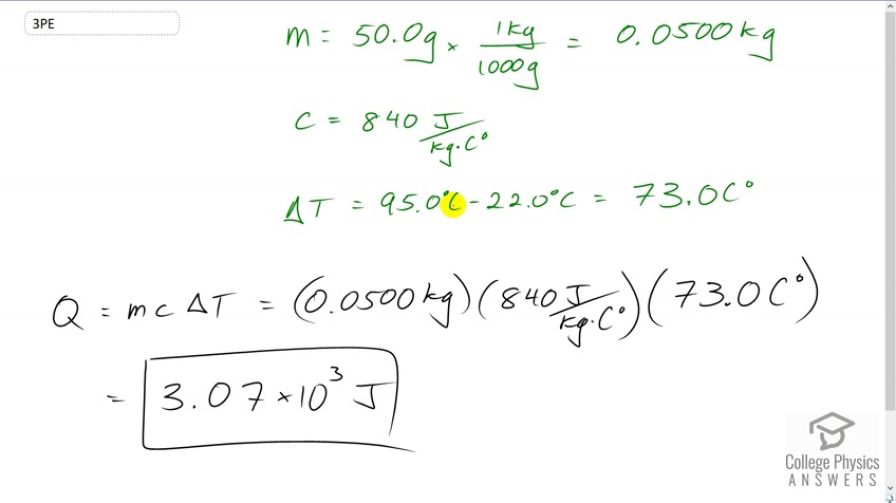 3PE
m = 50.0g × 1kg/1000g = 0.0500kg
c = 840 J/kg·C°
ΔT = 95.0°C - 22.0°C = 73.0C°
Q = mcΔT = (0.0500kg)(840 J/kg·C°)(73.0C°)
= 3.07×10³ J
College Physics
ANSWERS